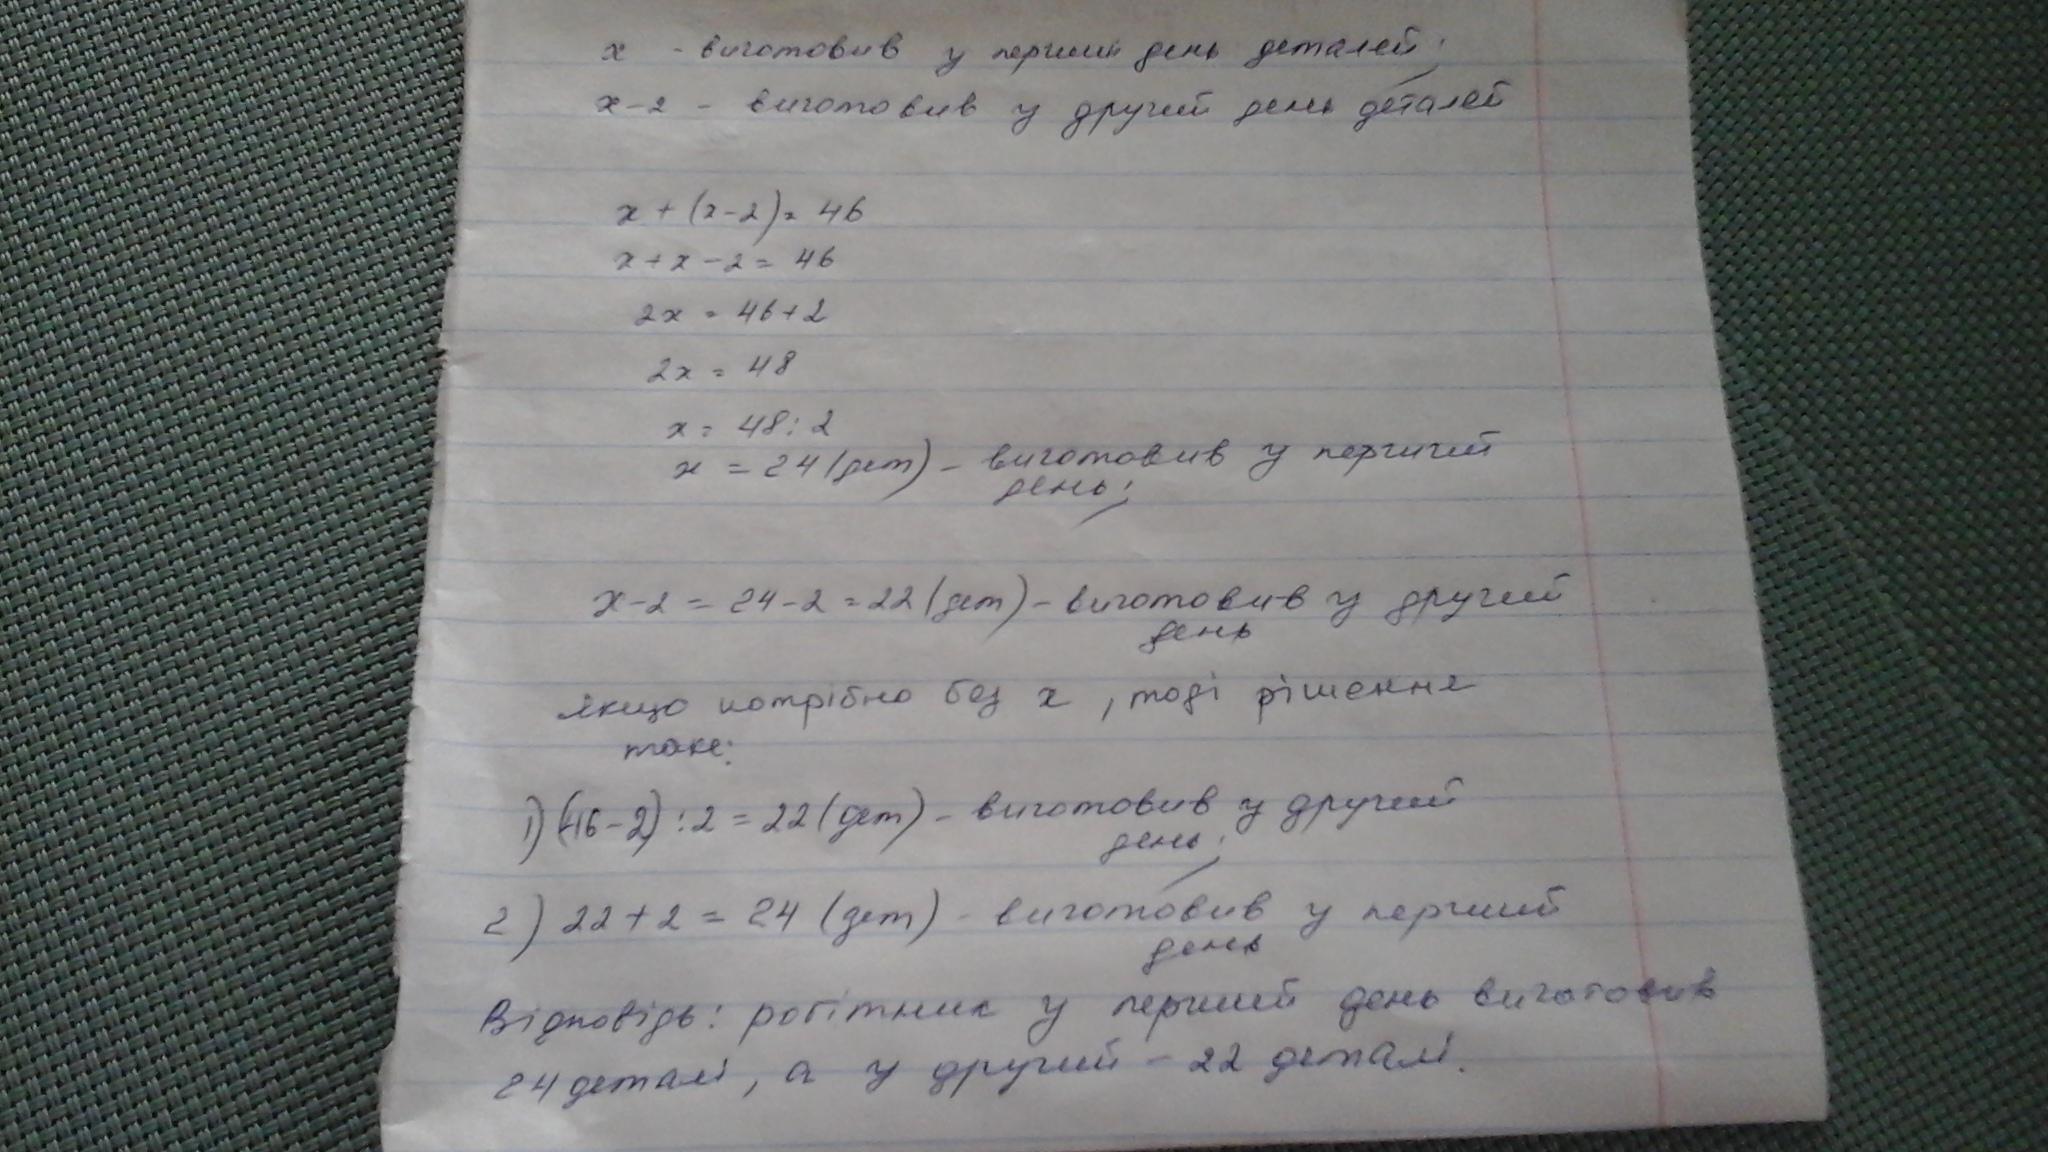 х - виготовив у перший день деталей;
х-2 - виготовив у другий день деталей
х + (х-2) = 46
х + х - 2 = 46
2х = 46+2
2х = 48
х = 48:2
х = 24 (дет) - виготовив у перший
день;
х-2 = 24-2 = 22 (дет) - виготовив у другий
день
якщо потрібно без х, тоді рішення
таке:
1) (46-2) : 2 = 22 (дет) - виготовив у другий
день;
2) 22 + 2 = 24 (дет) - виготовив у перший
день
Відповідь: робітник у перший день виготовив
24 деталі, а у другий - 22 деталі.